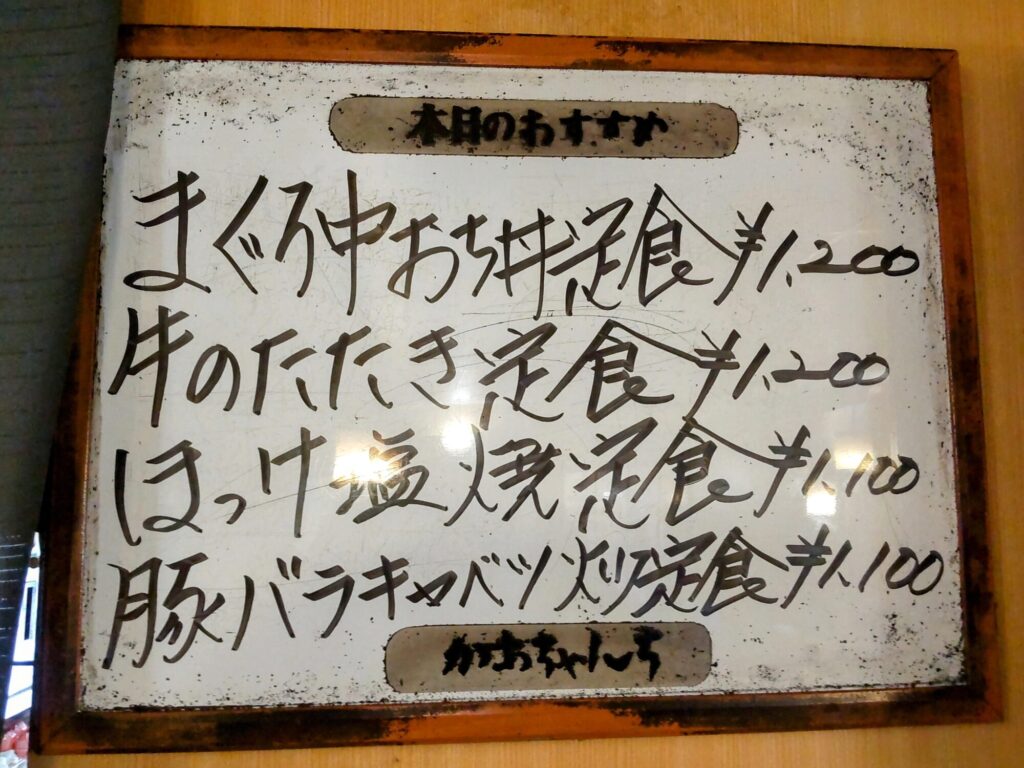 本日のおすすめ
まぐろ中おち丼定食 ¥1,200
牛のたたき定食 ¥1,200
ほっけ塩焼定食 ¥1,100
豚バラキャベツ炒め定食 ¥1,100
かあちゃんち